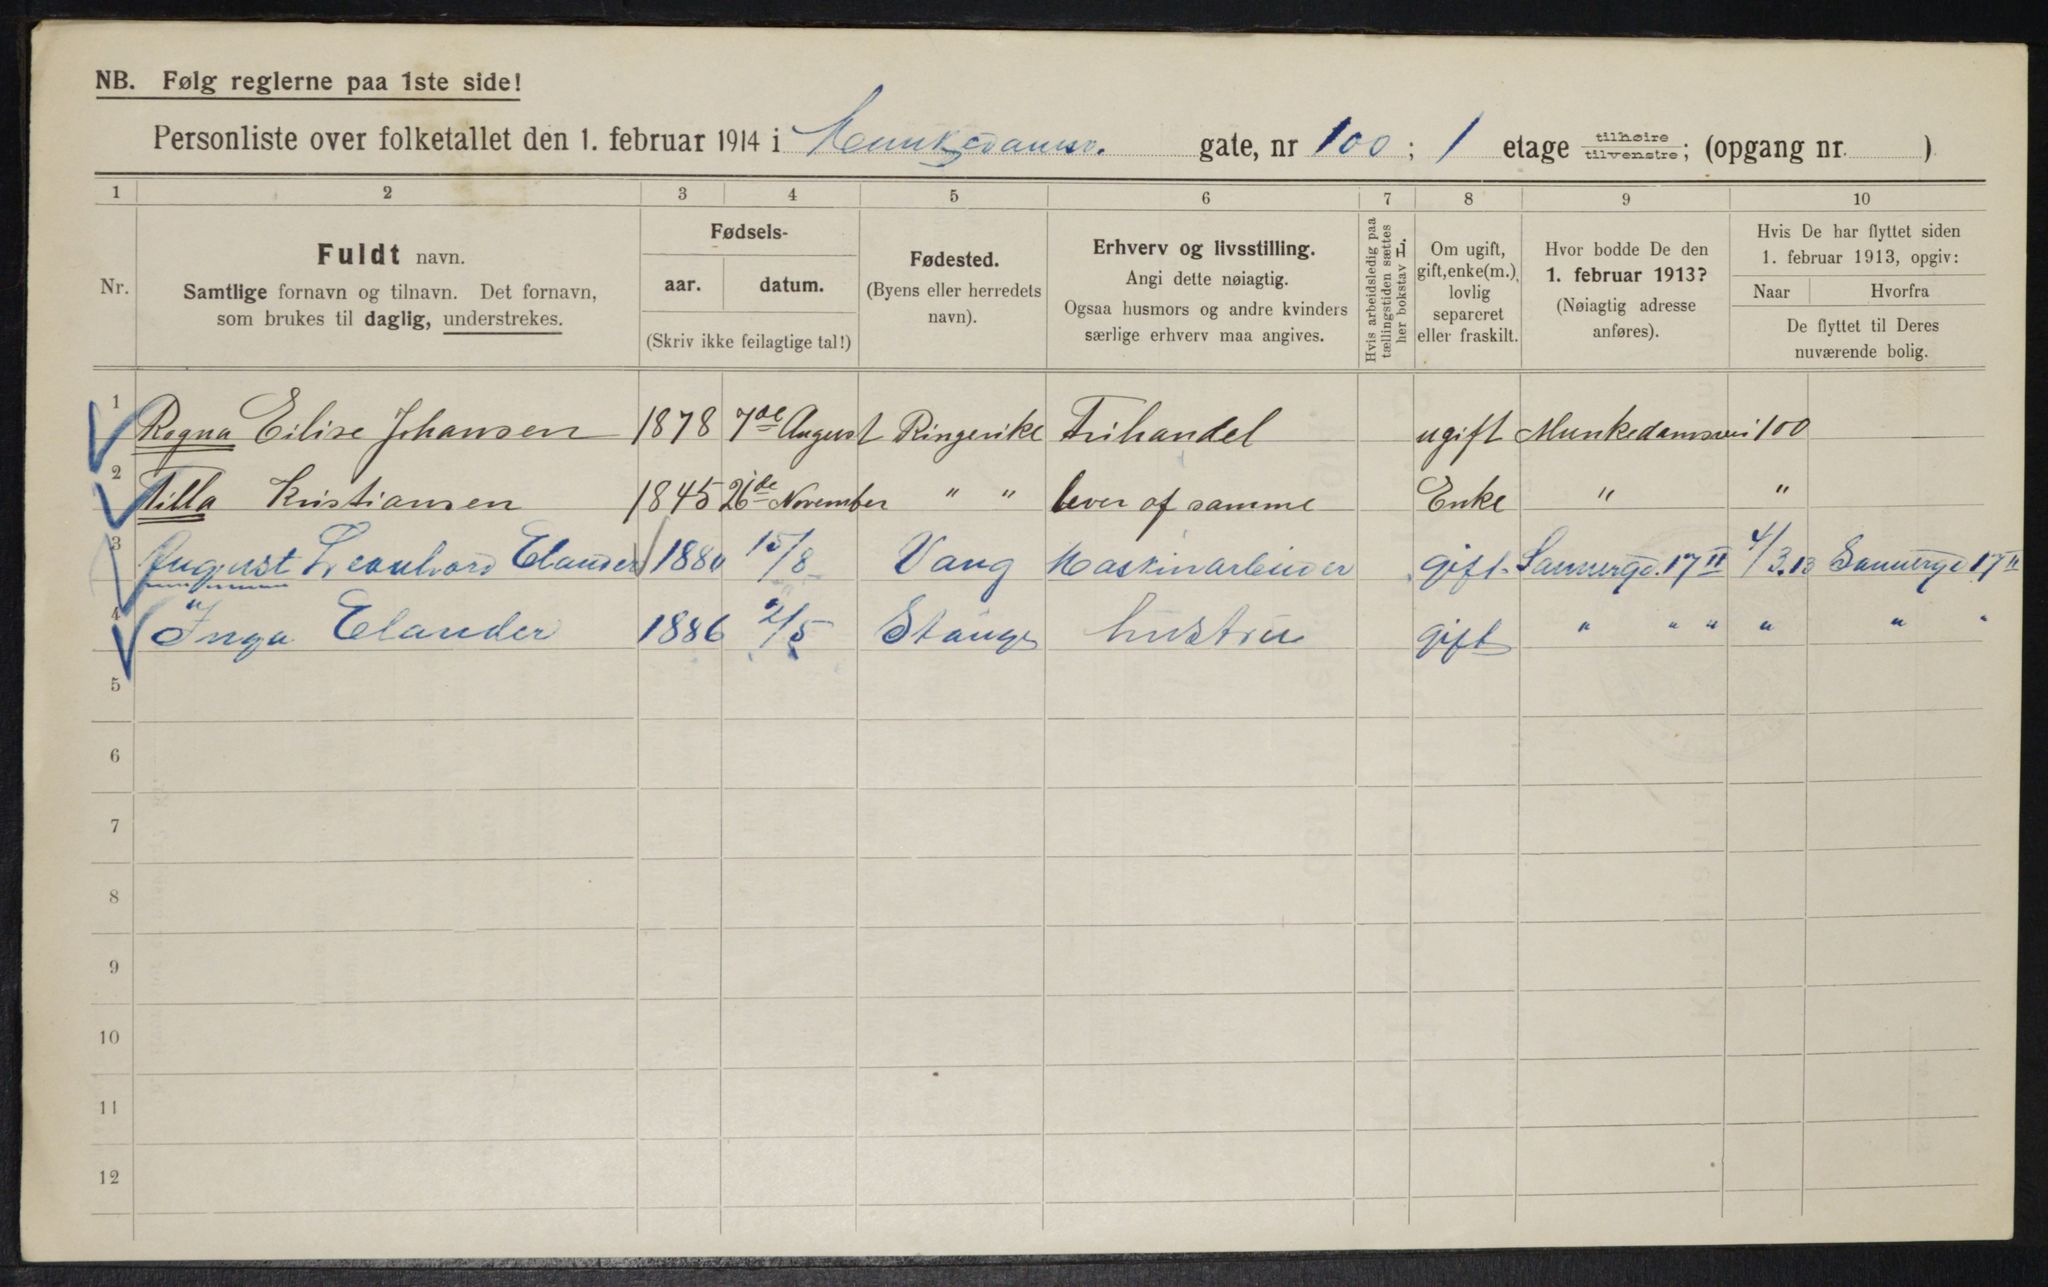 NB. Følg reglerne paa 1ste side!
Personliste over folketallet den 1. februar 1914 i Munkedamsv. gate, nr 100 ; 1 etage tilhøire/tilvenstre; (opgang nr. )
1 2 3 4 5 6 7 8 9 10
Nr.
Fuldt navn.
Samtlige fornavn og tilnavn. Det fornavn,
som brukes til daglig, understrekes.
Fødsels-
aar. datum.
(Skriv ikke feilagtige tal!)
Fødested.
(Byens eller herredets
navn).
Erhverv og livsstilling.
Angi dette nøiagtig.
Ogsaa husmors og andre kvinders
særlige erhverv maa angives.
Hvis arbeidsledig paa
tællingstiden sættes
her bokstav i
Om ugift,
gift, enke(m.),
lovlig
separeret
eller fraskilt.
Hvor bodde De den
1. februar 1913?
(Nøiagtig adresse
anføres).
Hvis De har flyttet siden
1. februar 1913, opgiv:
Naar Hvorfra
De flyttet til Deres
nuværende bolig.
1 Ragna Eilise Johansen 1878 7de August Ringerike Frihandel ugift Munkedamsvei 100
2 Tilla Kristiansen 1845 26de November " " lever af samme Enke " "
3 August Leonhard Elander 1880 15/8 Vang Maskinarbeider gift Sannergd. 17 II 4/3.13 Sannergd 17 II
4 Inga Elander 1886 2/5 Stange hustru gift " " " " " "
5
6
7
8
9
10
11
12